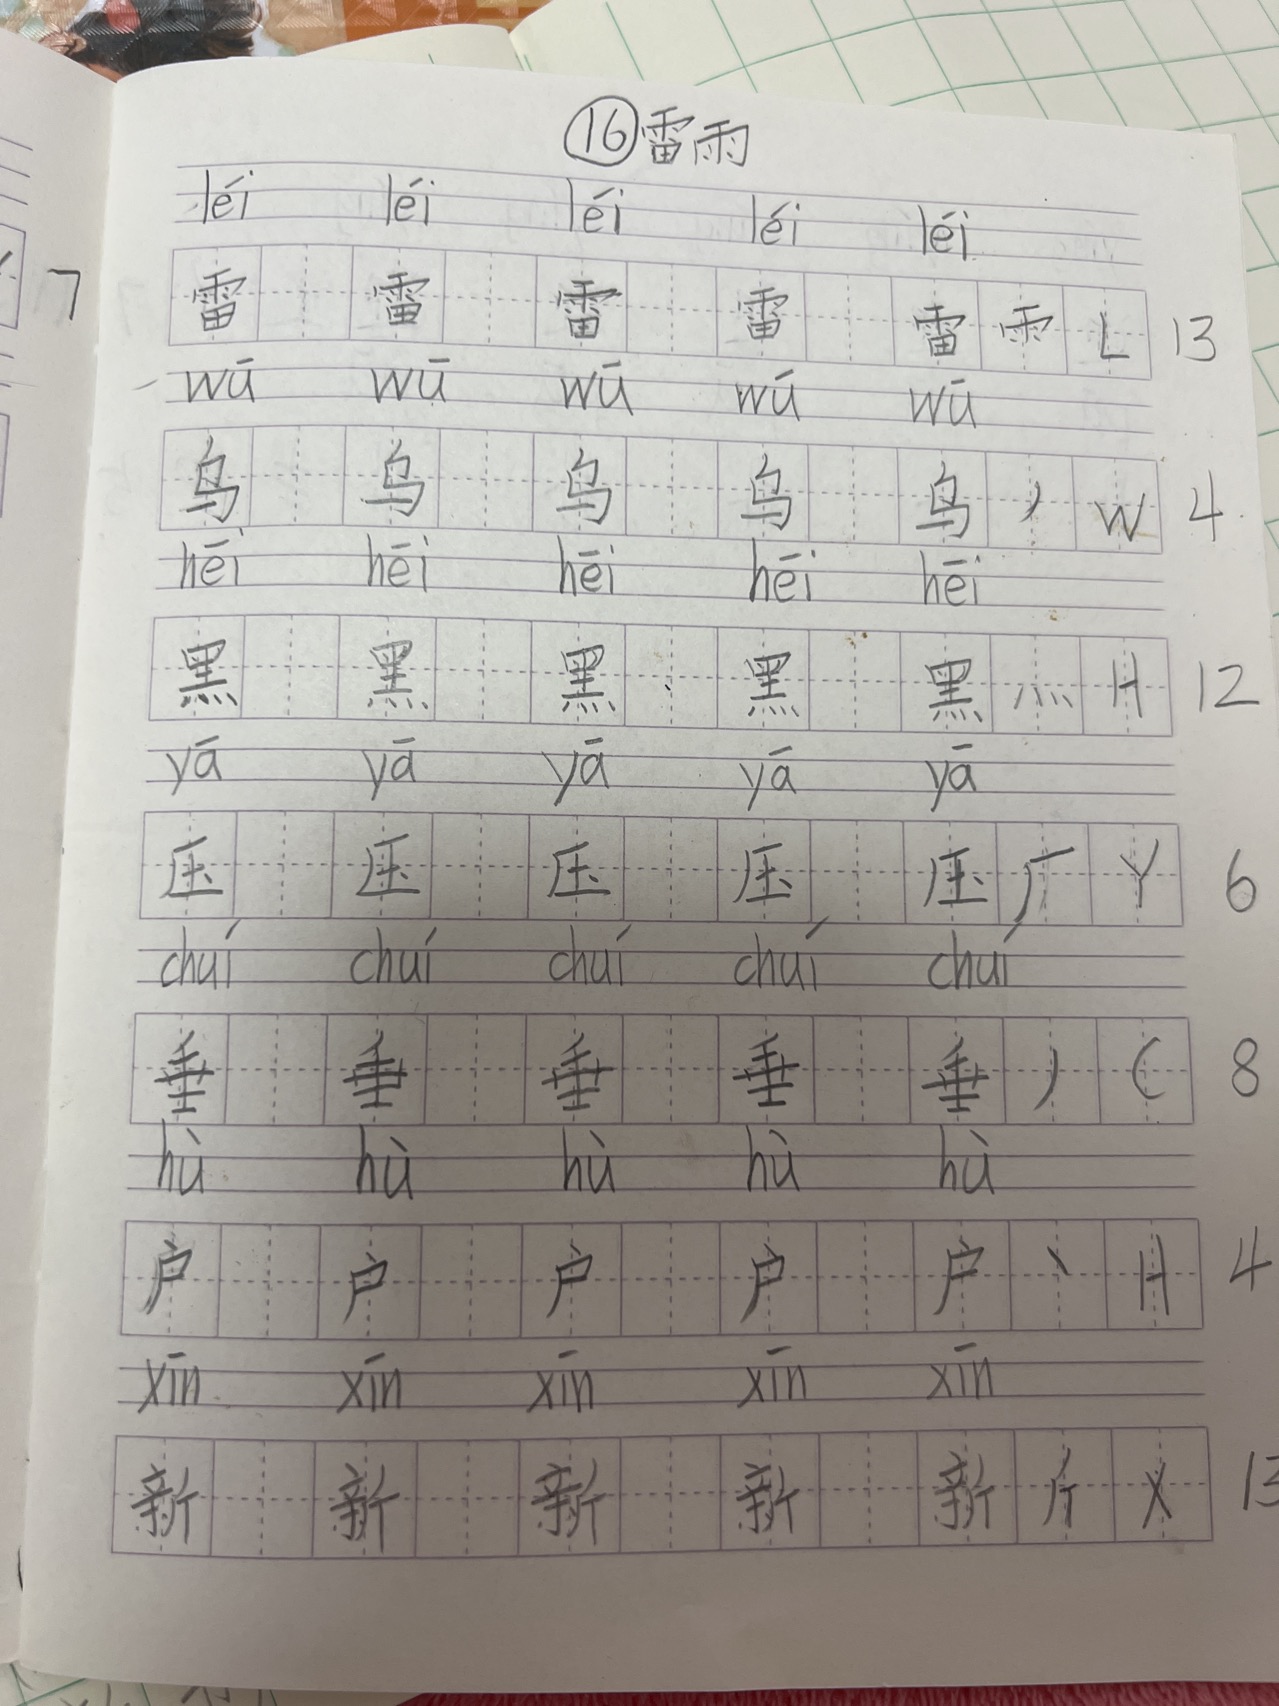 ⑯雷雨
léi léi léi léi léi
雷 雷 雷 雷 雷 雨 L 13
wū wū wū wū wū
乌 乌 乌 乌 乌 丿 W 4
hēi hēi hēi hēi hēi
黑 黑 黑 黑 黑 灬 H 12
yā yā yā yā yā
压 压 压 压 压 厂 Y 6
chuí chuí chuí chuí chuí
垂 垂 垂 垂 垂 丿 C 8
hù hù hù hù hù
户 户 户 户 户 丶 H 4
xīn xīn xīn xīn xīn
新 新 新 新 新 斤 X 13
7